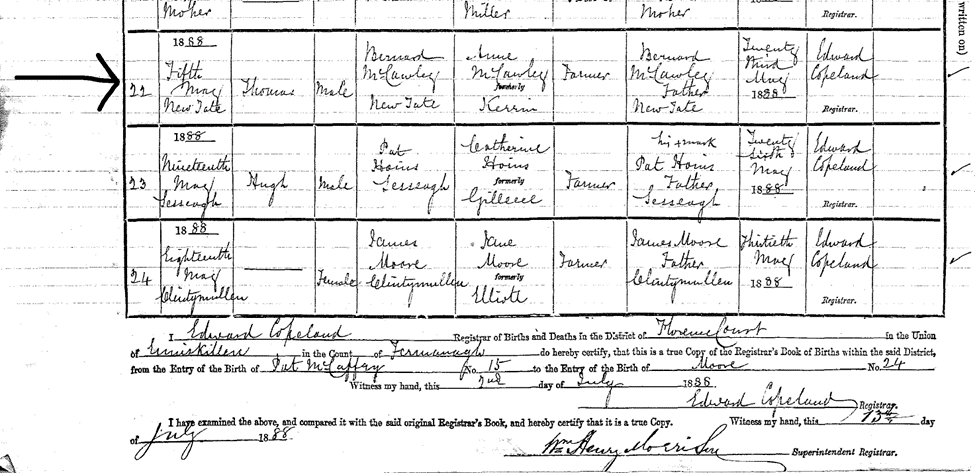 Moher Miller Moher Registrar.
written on)
1888
Fifth May New Tate
22 Thomas Male
Bernard McCawley New Tate
Anne McCawley formerly Kerrin
Farmer
Bernard McCawley Father New Tate
Twenty third May 1888
Edward Copeland Registrar.
1888
Nineteenth May Sesseagh
23 Hugh Male
Pat Hoins Sesseagh
Catherine Hoins formerly Gilleece
Farmer
his mark Pat Hoins Father Sesseagh
Twenty sixth May 1888
Edward Copeland Registrar.
1888
Eighteenth May Clintymullen
24 Female
James Moore Clintymullen
Jane Moore formerly Elliott
Farmer
James Moore Father Clintymullen
Thirtieth May 1888
Edward Copeland Registrar.
I Edward Copeland Registrar of Births and Deaths in the District of Florence Court in the Union
of Enniskillen in the Count of Fermanagh do hereby certify, that this is a true Copy of the Registrar's Book of Births within the said District,
from the Entry of the Birth of Pat McCaffry No. 15 to the Entry of the Birth of Moore No. 24
Witness my hand, this 2nd day of July 1888
Edward Copeland Registrar.
I have examined the above, and compared it with the said original Registrar's Book, and hereby certify that it is a true Copy. Witness my hand, this 13th day
of July 1888
Wm Henry Morrison Superintendent Registrar.